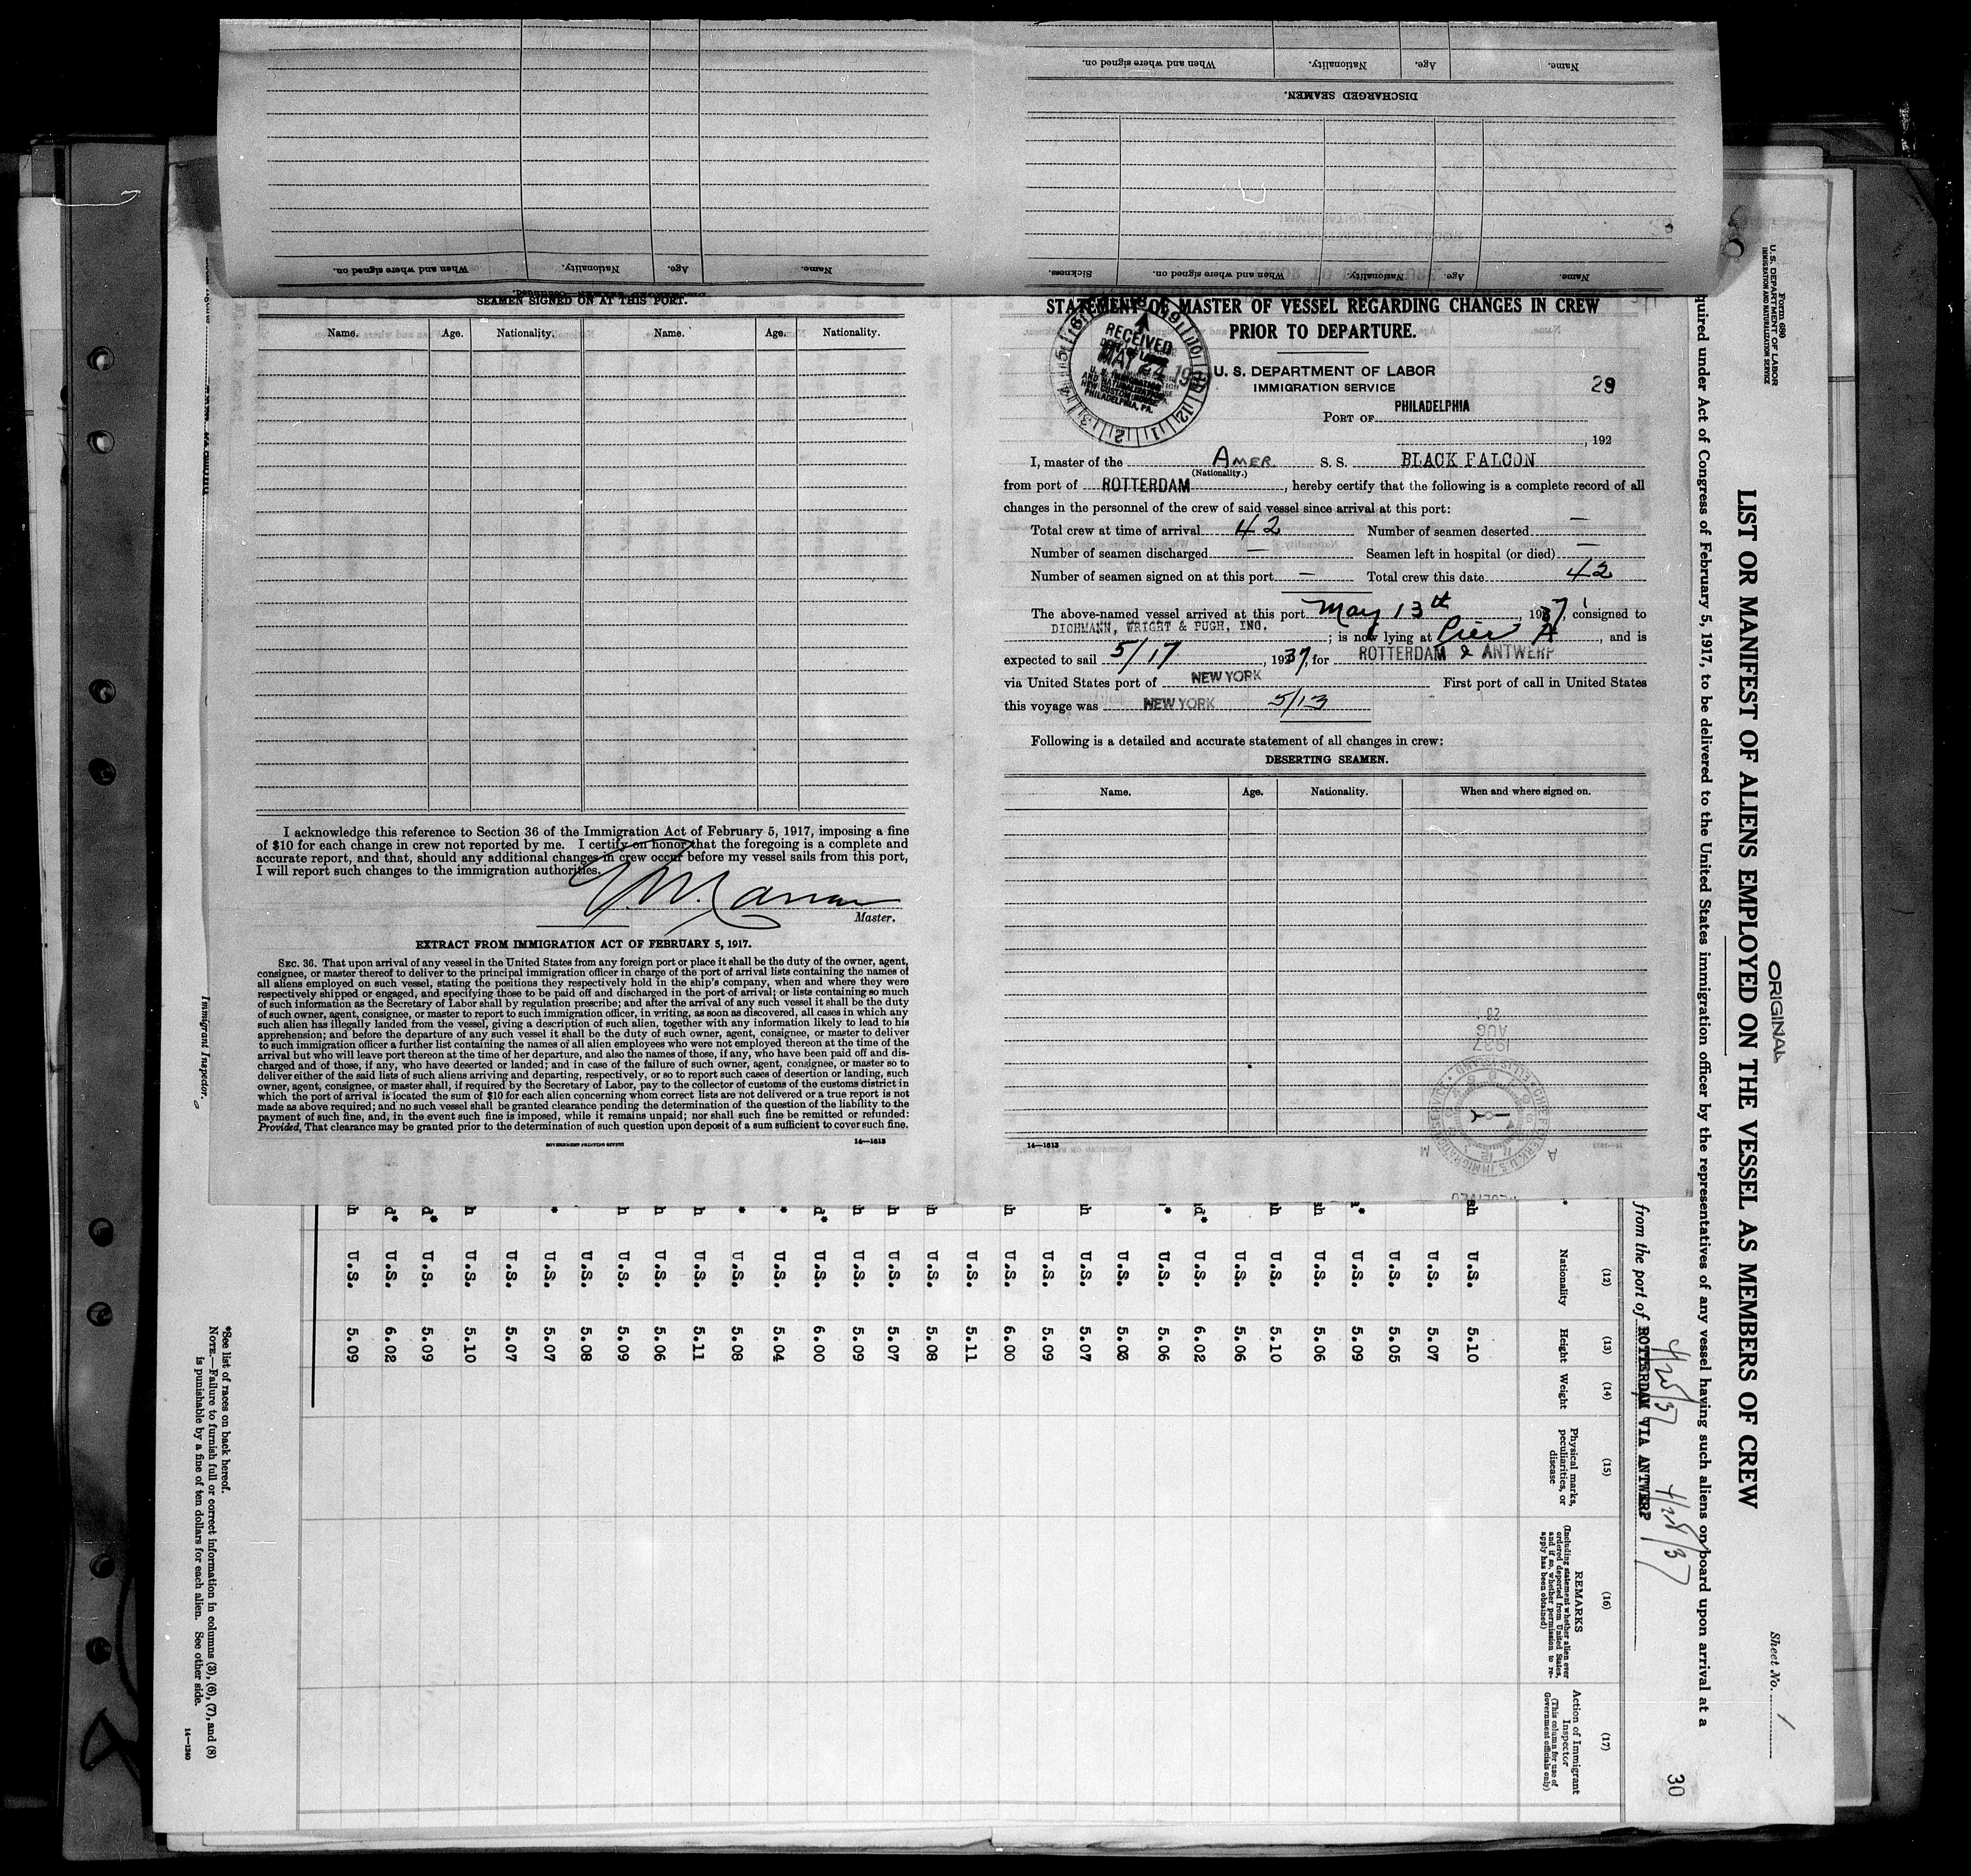 Name. Age. Nationality. When and where signed on.
DISCHARGED SEAMEN.
Name. Age. Nationality. When and where signed on. Sickness.
Name. Age. Nationality. When and where signed on.
SEAMEN SIGNED ON AT THIS PORT.
Name. Age. Nationality. Name. Age. Nationality.
I acknowledge this reference to Section 36 of the Immigration Act of February 5, 1917, imposing a fine
of $10 for each change in crew not reported by me. I certify on honor that the foregoing is a complete and
accurate report, and that, should any additional changes in crew occur before my vessel sails from this port,
I will report such changes to the immigration authorities.
Master.
EXTRACT FROM IMMIGRATION ACT OF FEBRUARY 5, 1917.
SEC. 36. That upon arrival of any vessel in the United States from any foreign port or place it shall be the duty of the owner, agent,
consignee, or master thereof to deliver to the principal immigration officer in charge of the port of arrival lists containing the names of
all aliens employed on such vessel, stating the positions they respectively hold in the ship's company, when and where they were
respectively shipped or engaged, and specifying those to be paid off and discharged in the port of arrival; or lists containing so much
of such information as the Secretary of Labor shall by regulation prescribe; and after the arrival of any such vessel it shall be the duty
of such owner, agent, consignee, or master to report to such immigration officer, in writing, as soon as discovered, all cases in which any
such alien has illegally landed from the vessel, giving a description of such alien, together with any information likely to lead to his
apprehension; and before the departure of any such vessel it shall be the duty of such owner, agent, consignee, or master to deliver
to such immigration officer a further list containing the names of all alien employees who were not employed thereon at the time of the
arrival but who will leave port thereon at the time of her departure, and also the names of those, if any, who have been paid off and dis-
charged and of those, if any, who have deserted or landed; and in case of the failure of such owner, agent, consignee, or master so to
deliver either of the said lists of such aliens arriving and departing, respectively, or so to report such cases of desertion or landing, such
owner, agent, consignee, or master shall, if required by the Secretary of Labor, pay to the collector of customs of the customs district in
which the port of arrival is located the sum of $10 for each alien concerning whom correct lists are not delivered or a true report is not
made as above required; and no such vessel shall be granted clearance pending the determination of the question of the liability to the
payment of such fine, and, in the event such fine is imposed, while it remains unpaid; nor shall such fine be remitted or refunded:
Provided, That clearance may be granted prior to the determination of such question upon deposit of a sum sufficient to cover such fine.
GOVERNMENT PRINTING OFFICE 14—1613
STATEMENT OF MASTER OF VESSEL REGARDING CHANGES IN CREW
PRIOR TO DEPARTURE.
RECEIVED
MAY 24
PHILADELPHIA, PA.
U. S. DEPARTMENT OF LABOR
IMMIGRATION SERVICE
29
PORT OF PHILADELPHIA
, 192
I, master of the AMER. S. S. BLACK FALCON
(Nationality.)
from port of ROTTERDAM, hereby certify that the following is a complete record of all
changes in the personnel of the crew of said vessel since arrival at this port:
Total crew at time of arrival 42 Number of seamen deserted —
Number of seamen discharged — Seamen left in hospital (or died) —
Number of seamen signed on at this port — Total crew this date 42
The above-named vessel arrived at this port May 13th, 1937, consigned to
DICHMANN, WRIGHT & PUGH, INC. ; is now lying at Pier A, and is
expected to sail 5/17, 1937, for ROTTERDAM & ANTWERP
via United States port of NEW YORK First port of call in United States
this voyage was NEW YORK 5/13
Following is a detailed and accurate statement of all changes in crew:
DESERTING SEAMEN.
Name. Age. Nationality. When and where signed on.
1937
AUG
14—1613
Form 680
U. S. DEPARTMENT OF LABOR
IMMIGRATION AND NATURALIZATION SERVICE
ORIGINAL
Sheet No. 1
LIST OR MANIFEST OF ALIENS EMPLOYED ON THE VESSEL AS MEMBERS OF CREW
quired under Act of Congress of February 5, 1917, to be delivered to the United States immigration officer by the representatives of any vessel having such aliens on board upon arrival at a
from the port of ROTTERDAM VIA ANTWERP
30
(12) (13) (14) (15) (16) (17)
Nationality Height Weight
Physical marks, peculiarities, or disease
REMARKS
(Including statement whether alien ever ordered deported from United States, and if so, whether permission to re-apply has been obtained)
Action of Immigrant Inspector
(This column for use of Government officials only)
U.S. 5.10
U.S. 5.07
U.S. 5.05
U.S. 5.09
U.S. 5.06
U.S. 5.10
U.S. 5.06
U.S. 6.02
U.S. 5.06
U.S. 5.03
U.S. 5.07
U.S. 5.09
U.S. 6.00
U.S. 5.11
U.S. 5.08
U.S. 5.07
U.S. 5.09
U.S. 6.00
U.S. 5.04
U.S. 5.08
U.S. 5.11
U.S. 5.06
U.S. 5.09
U.S. 5.08
U.S. 5.07
U.S. 5.07
U.S. 5.10
U.S. 5.09
U.S. 6.02
U.S. 5.09
Immigrant Inspector.
*See list of races on back hereof.
NOTE.—Failure to furnish full or correct information in columns (3), (6), (7), and (8)
is punishable by a fine of ten dollars for each alien. See other side.
14—1240